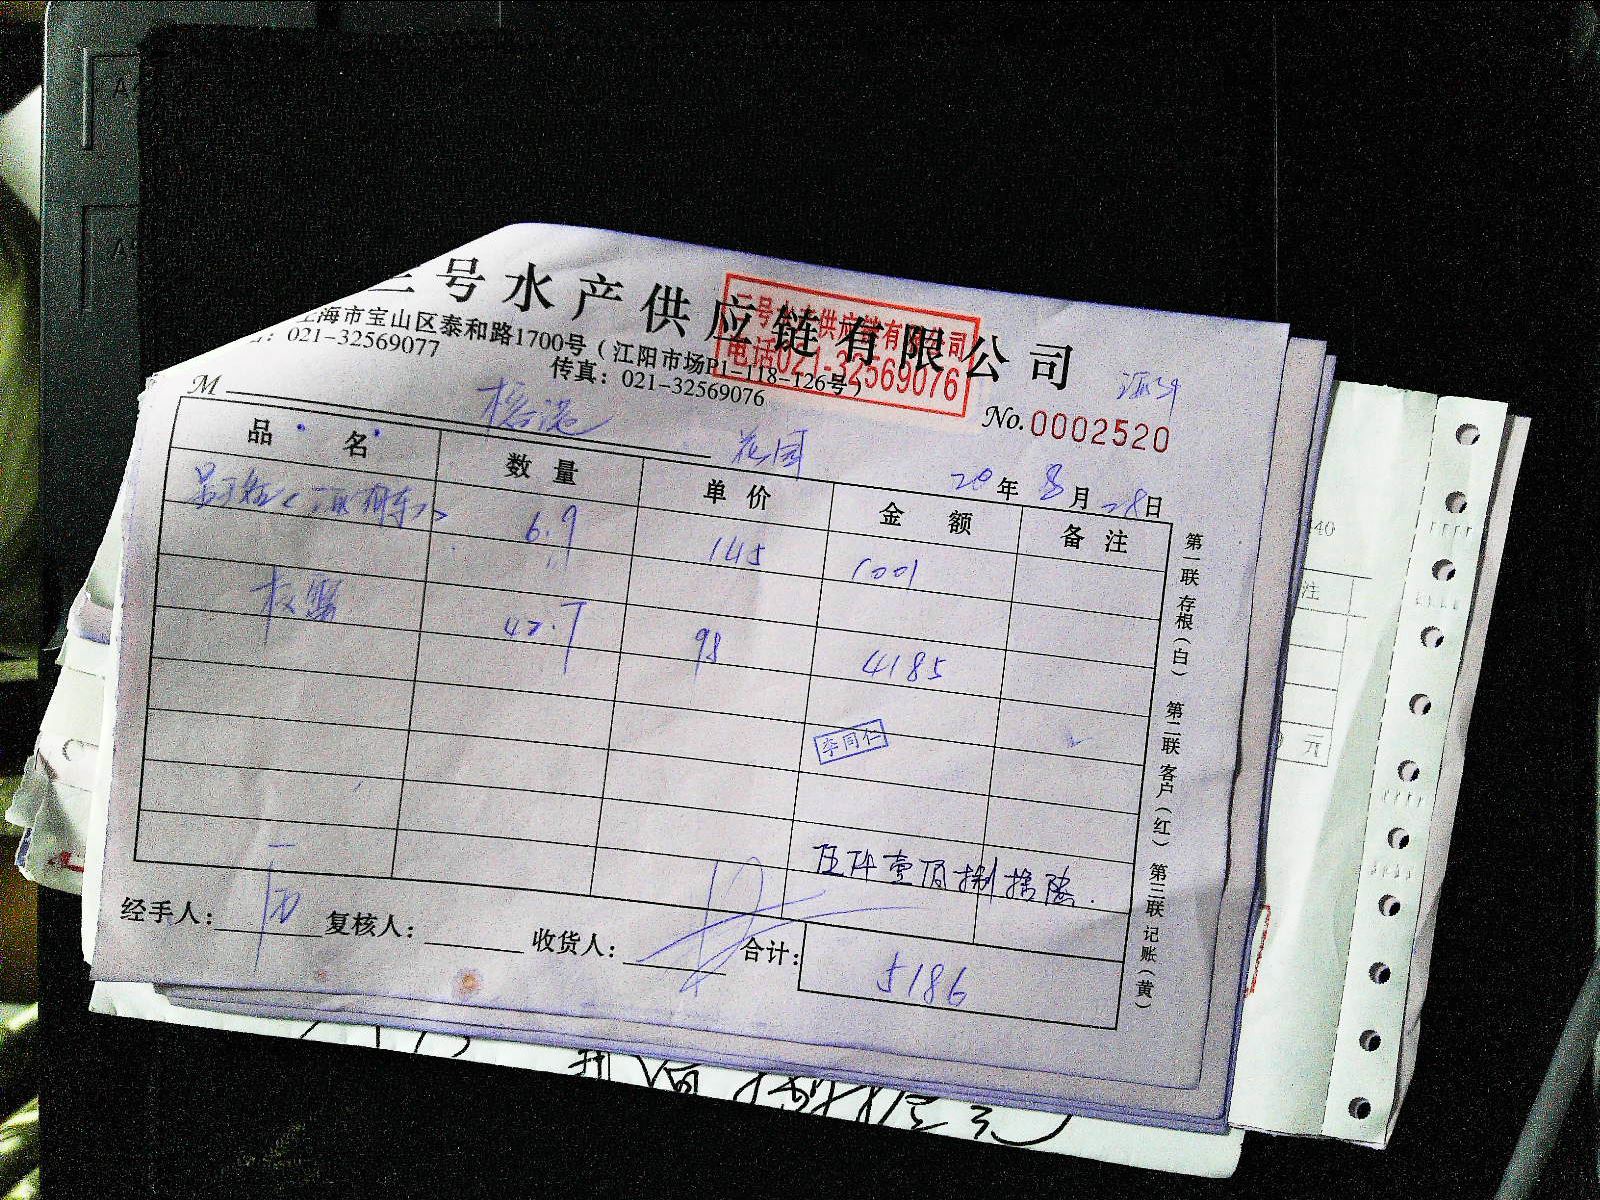 三号水产供应链有限公司
上海市宝山区泰和路1700号（江阳市场P1-118-126号）
021-32569077
传真：021-32569076
三号水产供应链有限公司
电话021-32569076
No.0002520
M
花园
20年8月28日
品名 数量 单价 金额 备注
6.9 145 1001
42.7 98 4185
李同仁
伍仟壹佰捌拾陆
经手人： 复核人： 收货人： 合计：5186
第一联存根（白） 第二联客户（红） 第三联记账（黄）
注
元